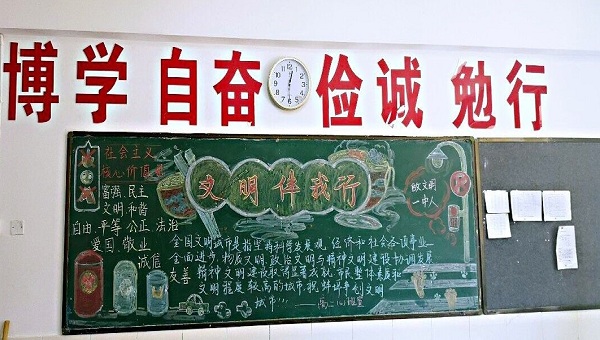 博学 自奋 俭诚 勉行
社会主义
核心价值
富强 民主
文明 和谐
自由 平等 公正 法治
爱国 敬业
诚信
友善
文明伴我行
做文明
一中人
全国文明城市是指坚持科学发展观,经济和社会各项事业
全面进步,物质文明,政治文明与精神文明建设协调发展
精神文明建设取得显著成就,市民整体素质和
文明程度较高的城市.携蚌埠共创文明
城市